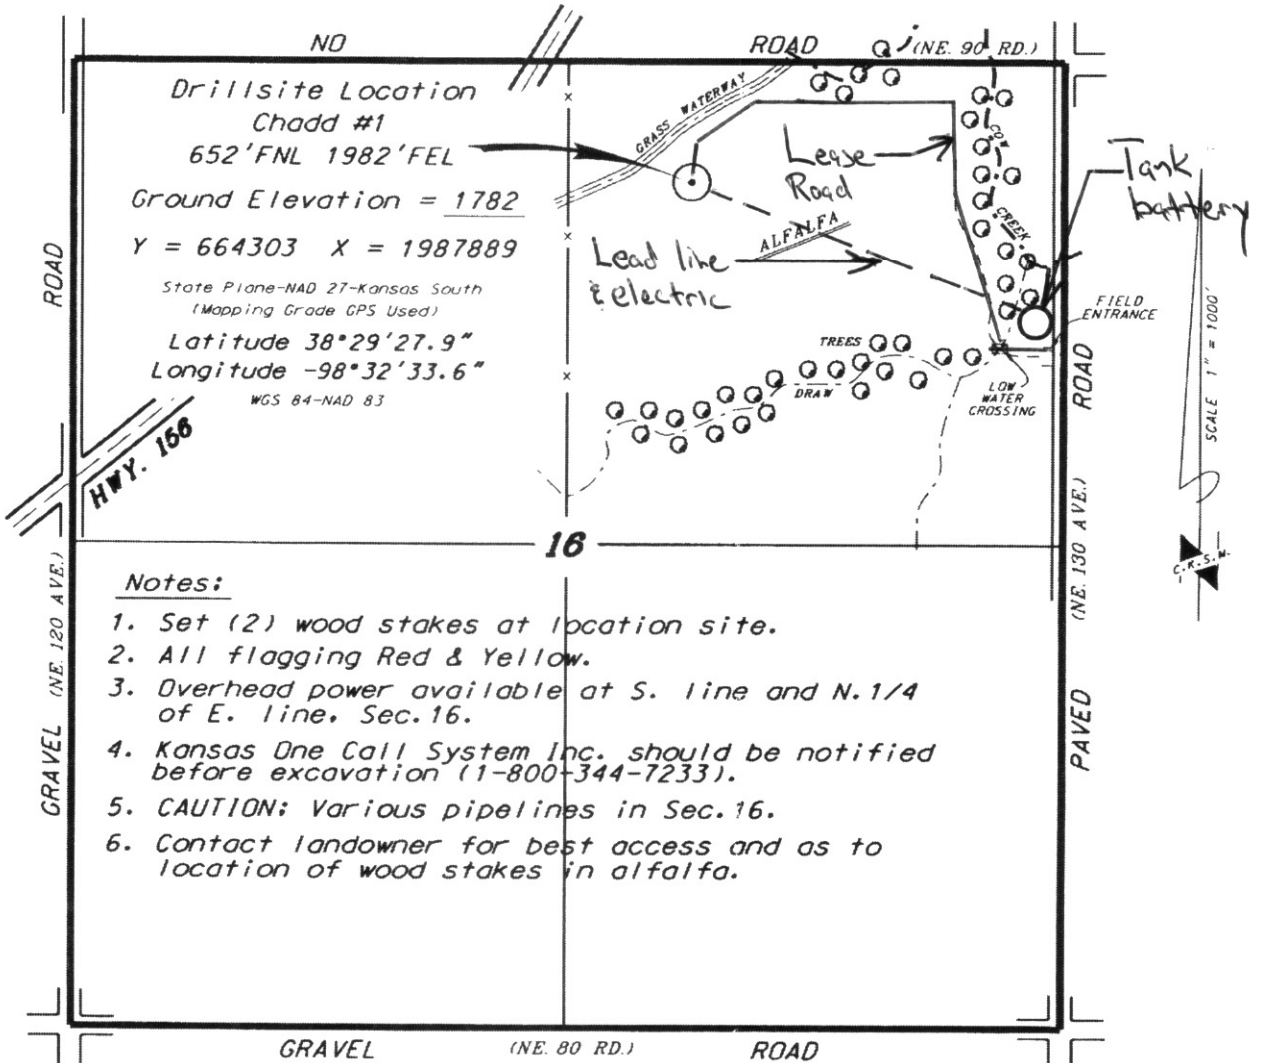 NO ROAD (NE. 90 RD.)
Drillsite Location
Chadd #1
652'FNL 1982'FEL
Ground Elevation = 1782
Y = 664303 X = 1987889
State Plane-NAD 27-Kansas South
(Mapping Grade GPS Used)
Latitude 38°29'27.9"
Longitude -98°32'33.6"
WGS 84-NAD 83
HWY. 156
GRASS WATERWAY
Lease
Road
ALFALFA
Lead line
& electric
COW
CREEK
Tank
battery
FIELD
ENTRANCE
TREES
DRAW
LOW
WATER
CROSSING
SCALE 1" = 1000'
C.K.S.W.
16
ROAD
(NE. 120 AVE.)
GRAVEL
ROAD
(NE. 130 AVE.)
PAVED
Notes:
1. Set (2) wood stakes at location site.
2. All flagging Red & Yellow.
3. Overhead power available at S. line and N.1/4
of E. line. Sec.16.
4. Kansas One Call System Inc. should be notified
before excavation (1-800-344-7233).
5. CAUTION: Various pipelines in Sec.16.
6. Contact landowner for best access and as to
location of wood stakes in alfalfa.
GRAVEL (NE. 80 RD.) ROAD